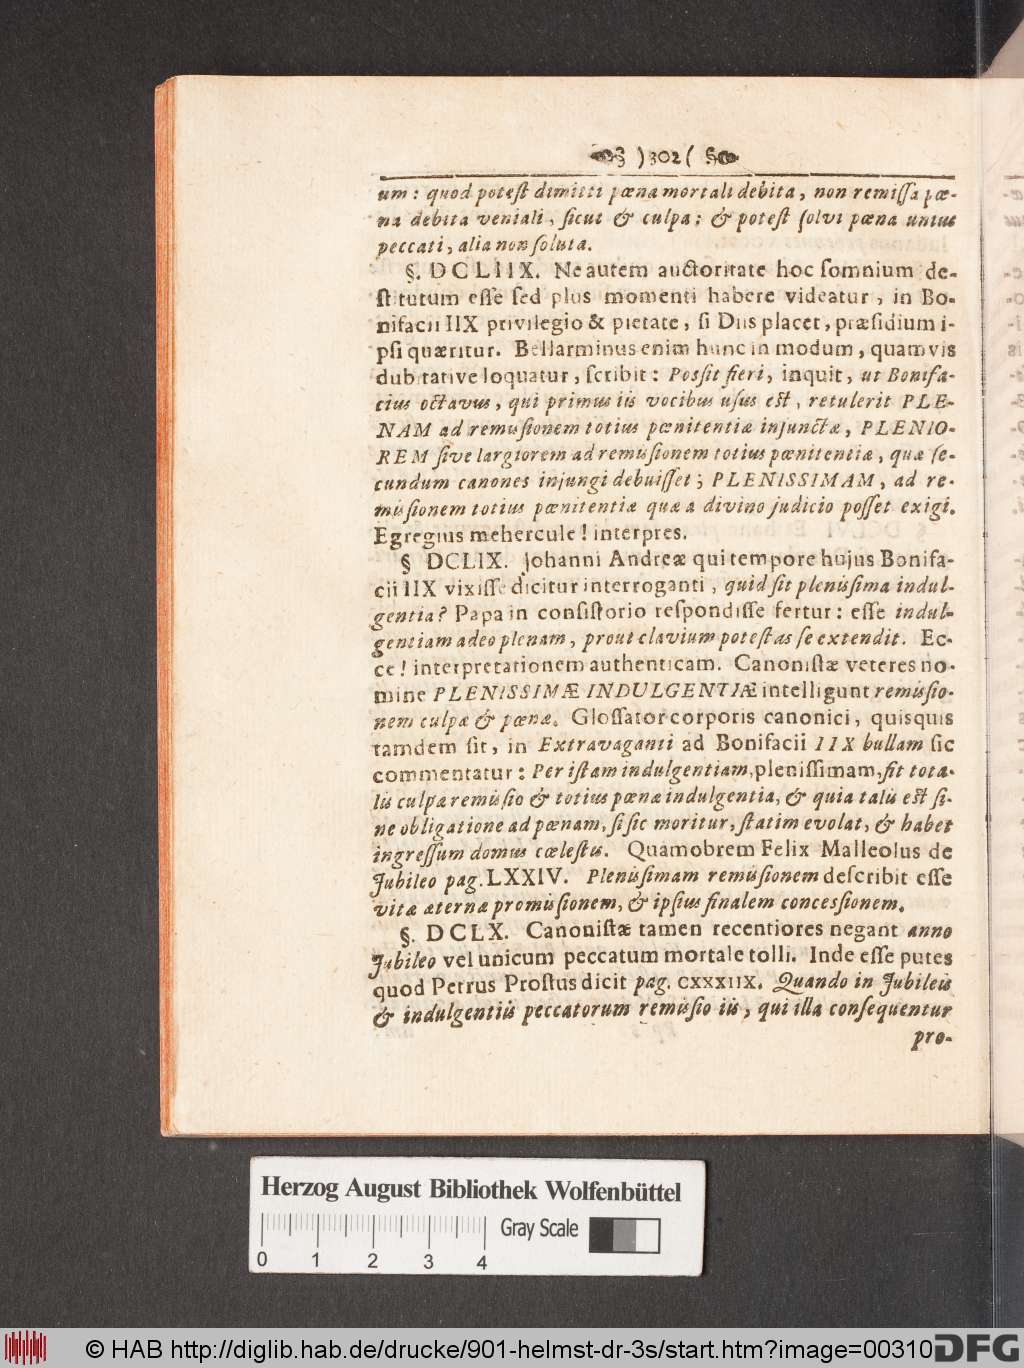 )302(
um: quod poteſt dimitti pœna mortali debita, non remiſſa pœ-
na debita veniali, ſicut & culpa; & poteſt ſolvi pœna unius
peccati, alia non ſoluta.
§. DCLIIX. Ne autem auctoritate hoc ſomnium de-
ſtitutum eſſe ſed plus momenti habere videatur, in Bo-
nifacii IIX privilegio & pietate, ſi Diis placet, præſidium i-
pſi quæritur. Bellarminus enim hunc in modum, quamvis
dubitative loquatur, ſcribit: Poſſit fieri, inquit, ut Bonifa-
cius octavus, qui primus iis vocibus uſus eſt, retulerit PLE-
NAM ad remiſſionem totius pœnitentiæ injunctæ, PLENIO-
REM ſive largiorem ad remiſſionem totius pœnitentiæ, quæ ſe-
cundum canones injungi debuiſſet; PLENISSIMAM, ad re-
miſſionem totius pœnitentiæ quæ a divino judicio poſſet exigi.
Egregius mehercule! interpres.
§ DCLIX. Johanni Andreæ qui tempore hujus Bonifa-
cii IIX vixiſſe dicitur interroganti, quid ſit pleniſſima indul-
gentia? Papa in conſiſtorio reſpondiſſe fertur: eſſe indul-
gentiam adeo plenam, prout clavium poteſtas ſe extendit. Ec-
ce! interpretationem authenticam. Canoniſtæ veteres no-
mine PLENISSIMÆ INDULGENTIÆ intelligunt remiſſio-
nem culpæ & pœnæ. Gloſſator corporis canonici, quisquis
tamdem ſit, in Extravaganti ad Bonifacii IIX bullam ſic
commentatur: Per iſtam indulgentiam, pleniſſimam, fit tota-
lis culpæ remiſſio & totius pœnæ indulgentia, & quia talis eſt ſi-
ne obligatione ad pœnam, ſi ſic moritur, ſtatim evolat, & habet
ingreſſum domus cœleſtis. Quamobrem Felix Malleolus de
Jubileo pag. LXXIV. Pleniſſimam remiſſionem deſcribit eſſe
vitæ æternæ promiſſionem, & ipſius finalem conceſſionem.
§. DCLX. Canoniſtæ tamen recentiores negant anno
Jubileo vel unicum peccatum mortale tolli. Inde eſſe putes
quod Petrus Proſtus dicit pag. CXXXIIX. Quando in Jubileis
& indulgentiis peccatorum remiſſio iis, qui illa conſequentur
pro-
Herzog August Bibliothek Wolfenbüttel
Gray Scale
0 1 2 3 4
© HAB http://diglib.hab.de/drucke/901-helmst-dr-3s/start.htm?image=00310
DFG